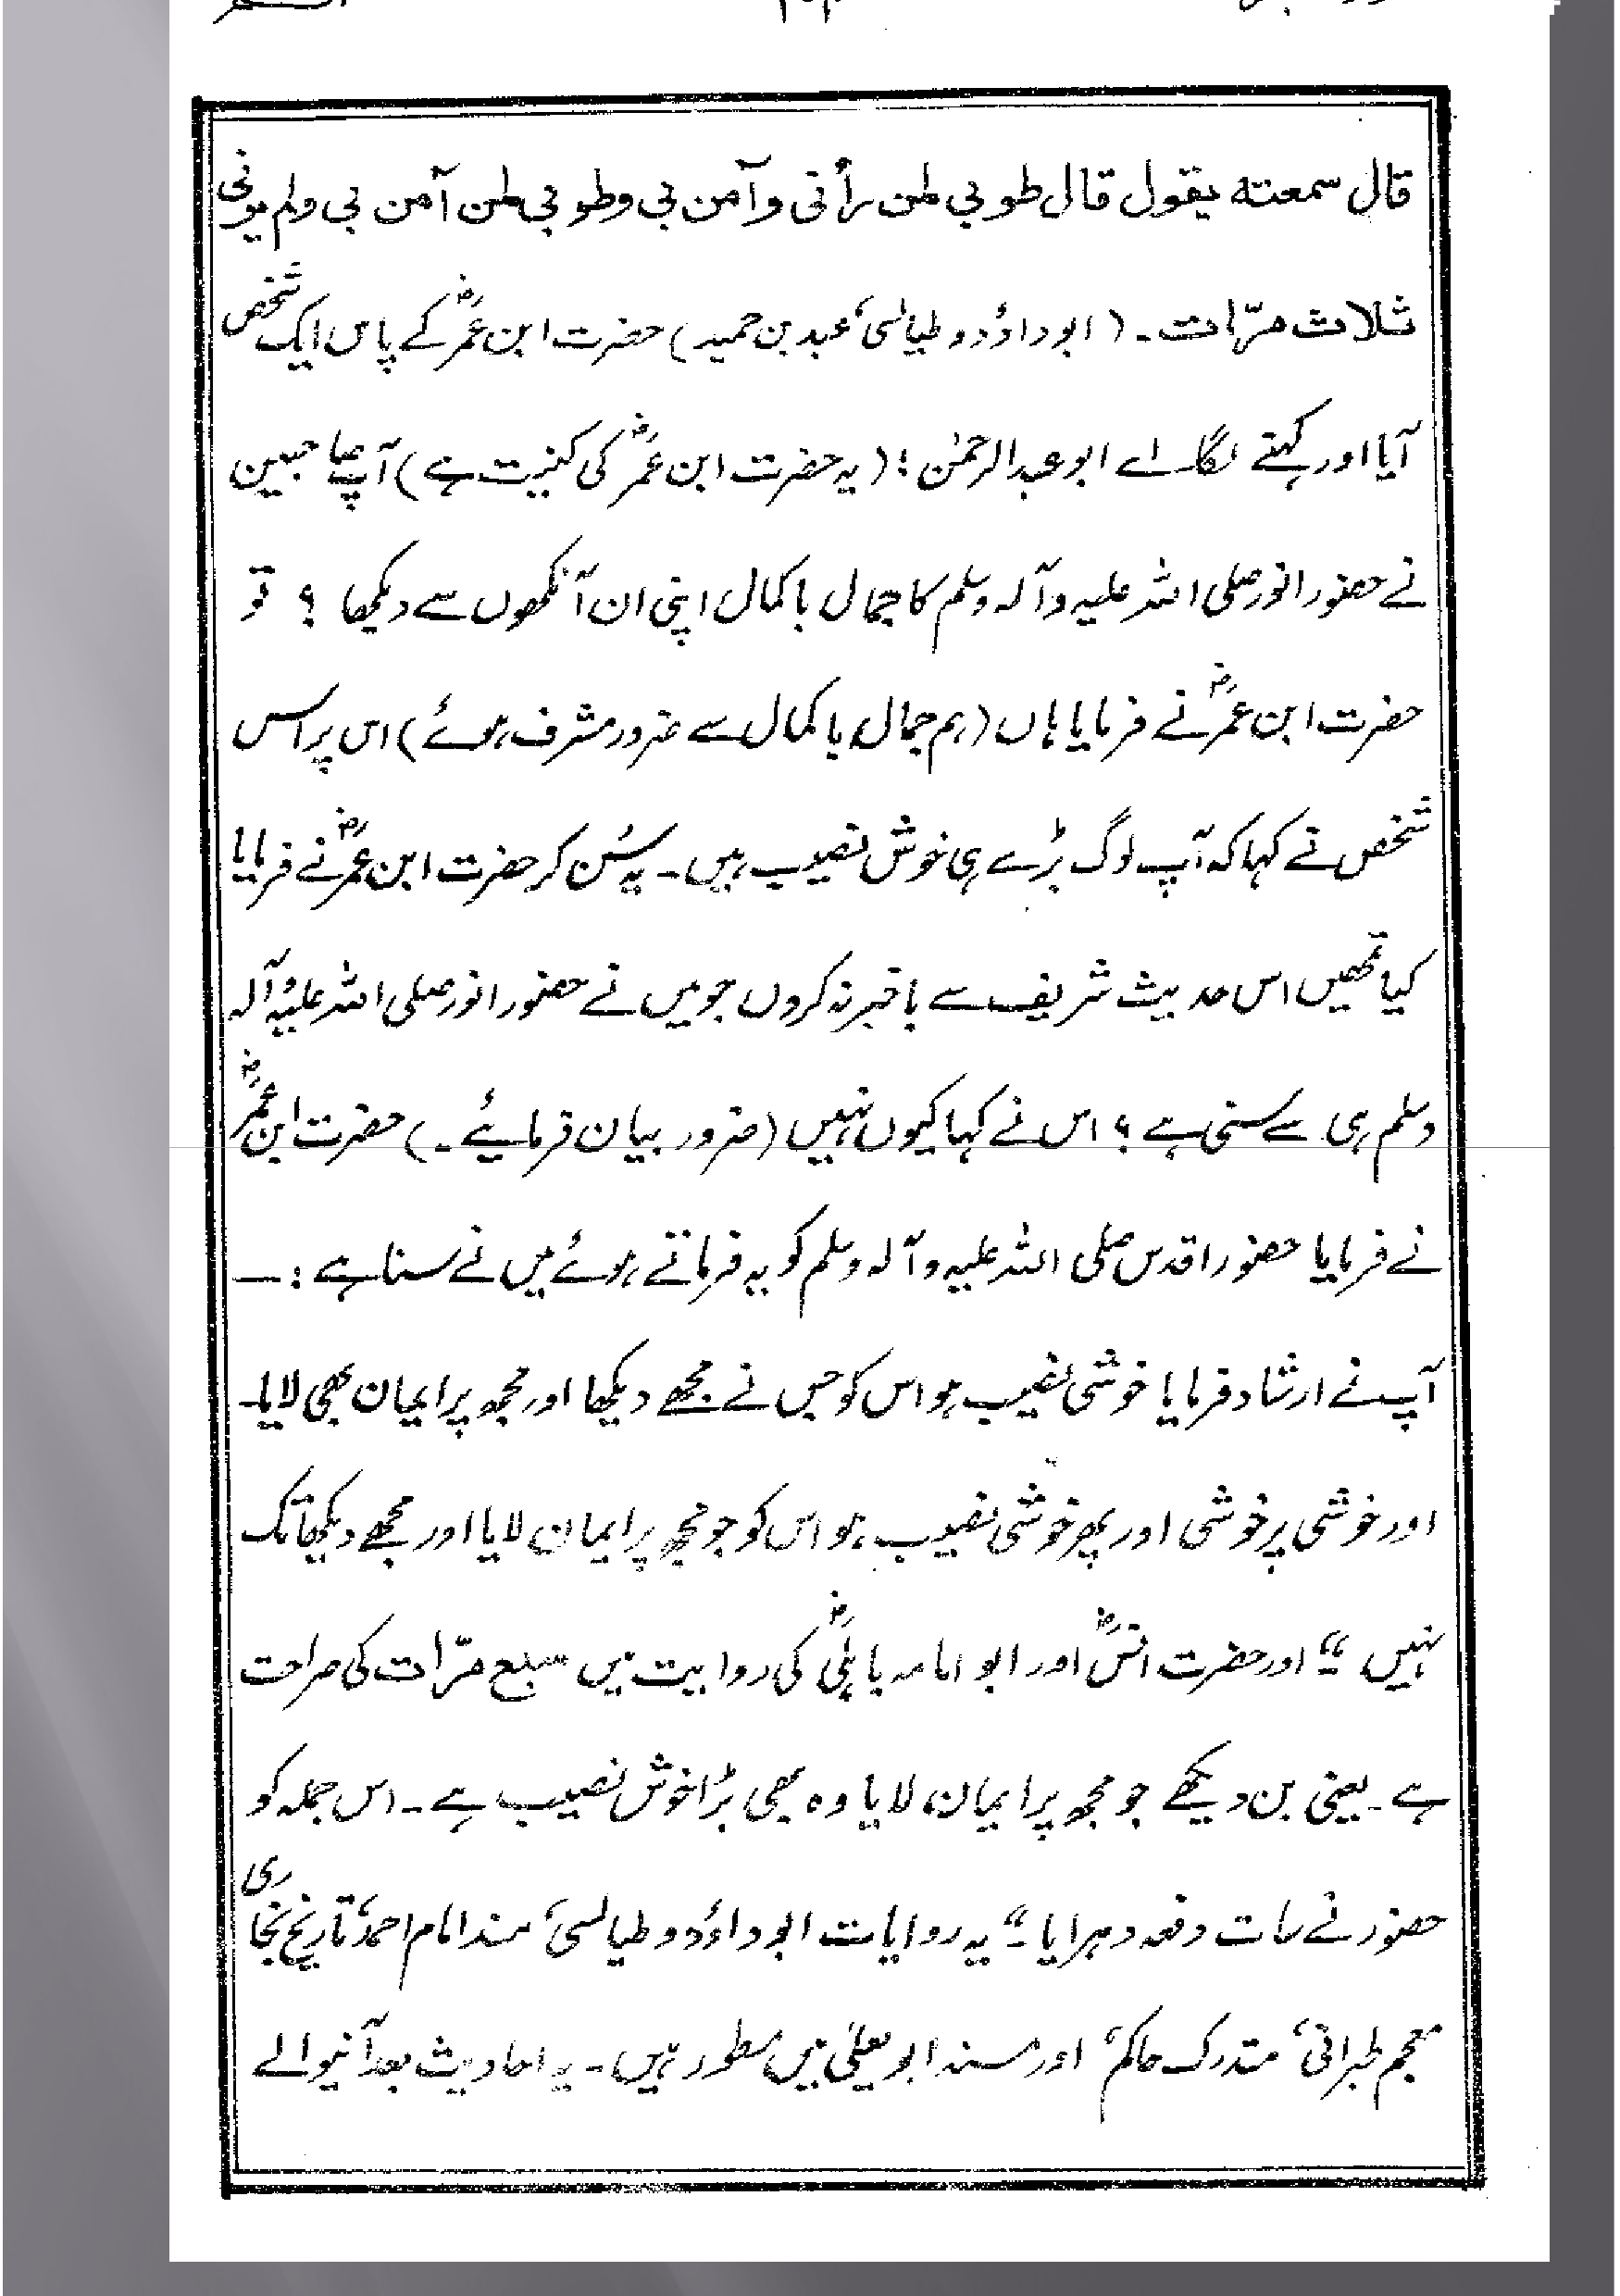 قال سمعته يقول قال طوبي لمن رأنی وآمن بی وطوبی لمن آمن بی ولم یرنی
ثلاث مرّات۔ (ابوداؤد و طیالسی، عبد بن حمید) حضرت ابن عمرؓ کے پاس ایک شخص
آیا اور کہنے لگا اے ابو عبدالرحمٰن! (یہ حضرت ابن عمرؓ کی کنیت ہے) آپ صاحبین
نے حضور انور صلی اللہ علیہ وآلہ وسلم کا جمال باکمال اپنی ان آنکھوں سے دیکھا ؟ تو
حضرت ابن عمرؓ نے فرمایا ہاں (ہم جمال باکمال سے ضرور مشرف ہوئے) اس پر اس
شخص نے کہا کہ آپ لوگ بڑے ہی خوش نصیب ہیں۔ یہ سُن کر حضرت ابن عمرؓ نے فرمایا
کیا تمھیں اس حدیث شریف سے باخبر نہ کروں جو میں نے حضور انور صلی اللہ علیہ وآلہ
وسلم ہی سے سنی ہے ؟ اس نے کہا کیوں نہیں (ضرور بیان فرمایئے۔) حضرت ابن عمرؓ
نے فرمایا حضور اقدس صلی اللہ علیہ وآلہ وسلم کو یہ فرماتے ہوئے میں نے سنا ہے :—
آپ نے ارشاد فرمایا خوشی نصیب ہو اس کو جس نے مجھے دیکھا اور مجھ پر ایمان بھی لایا۔
اور خوشی پر خوشی اور پھر خوشی نصیب ہو اس کو جو مجھ پر ایمان لایا اور مجھے دیکھا تک
نہیں ۔“ اور حضرت انسؓ اور ابو امامہ باہلیؓ کی روایت میں سبع مرّات کی صراحت
ہے۔ یعنی بن دیکھے جو مجھ پر ایمان لایا وہ بھی بڑا خوش نصیب ہے۔ اس جملہ کو
حضور نے سات دفعہ دہرایا ۔“ یہ روایات ابو داؤد و طیالسی، مسند امام احمد، تاریخ بخاری
معجم طبرانی، متدرک حاکم، اور مسند ابو یعلیٰ میں مسطور ہیں۔ یہ احادیث بعد آنیوالے